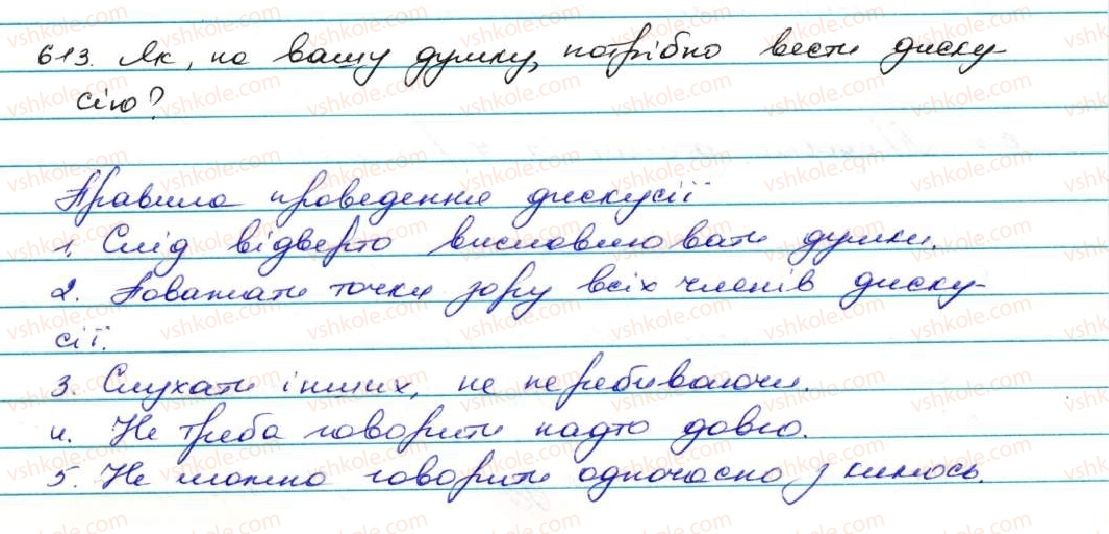 613. Як, на вашу думку, потрібно вести диску-
сію?
Правила проведення дискусії
1. Слід відверто висловлювати думки.
2. Поважати точки зору всіх членів диску-
сії.
3. Слухати інших, не перебиваючи.
4. Не треба говорити надто довго.
5. Не можна говорити одночасно з кимось.